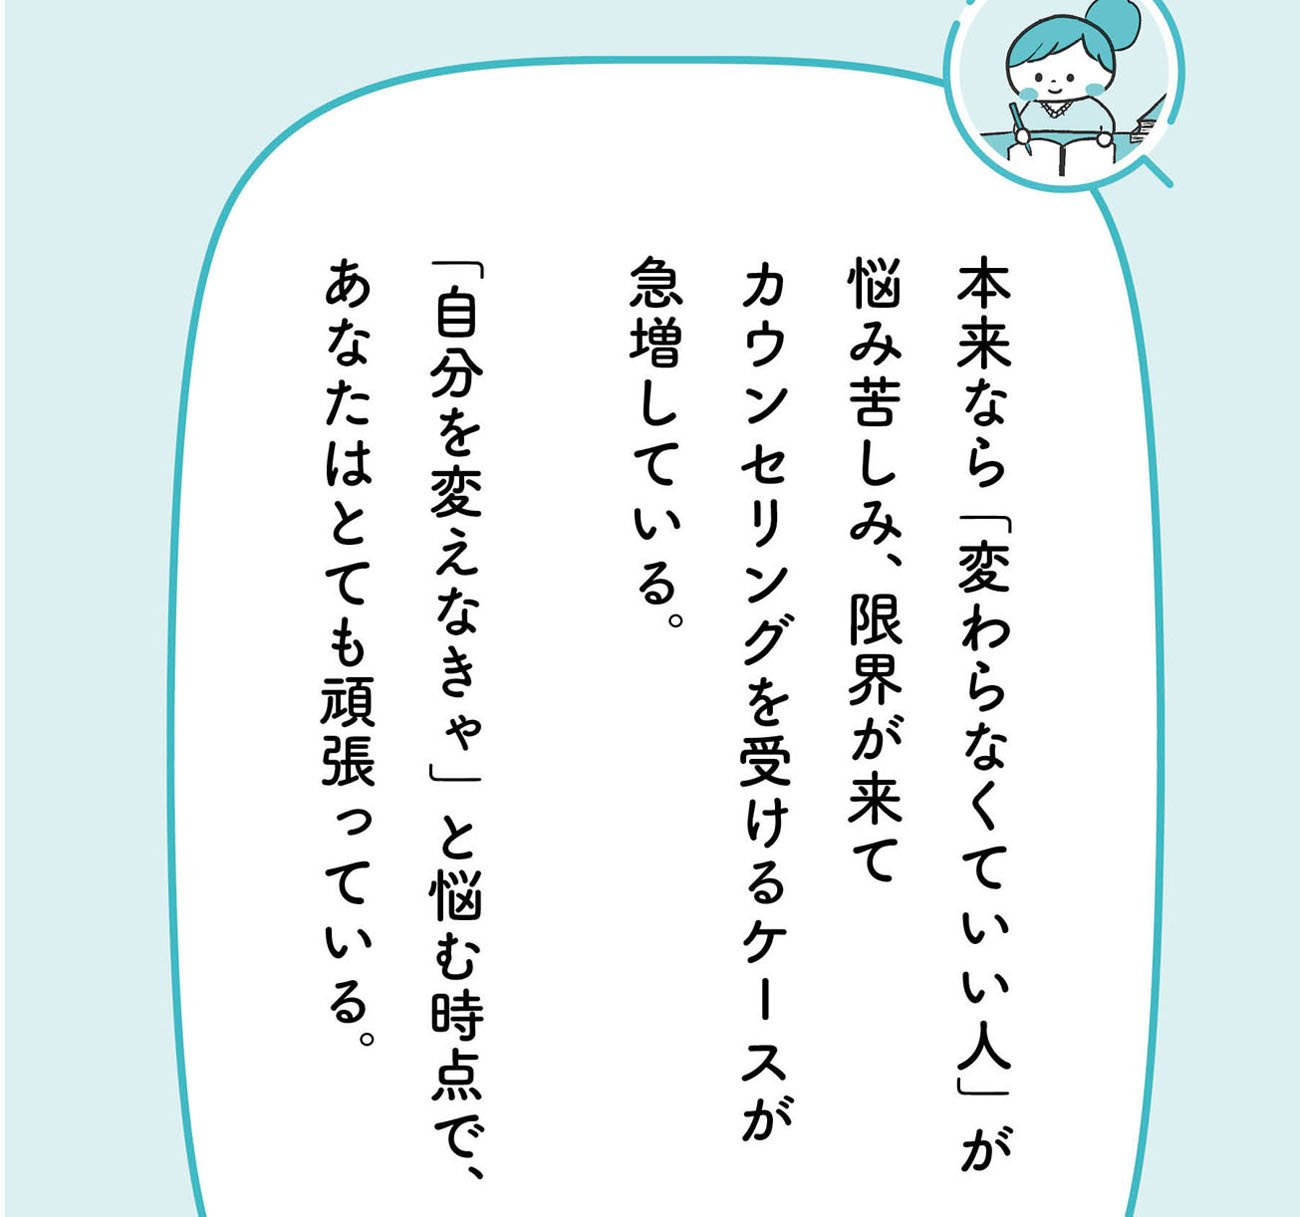 本来なら「変わらなくていい人」が
悩み苦しみ、限界が来て
カウンセリングを受けるケースが
急増している。
「自分を変えなきゃ」と悩む時点で、
あなたはとても頑張っている。